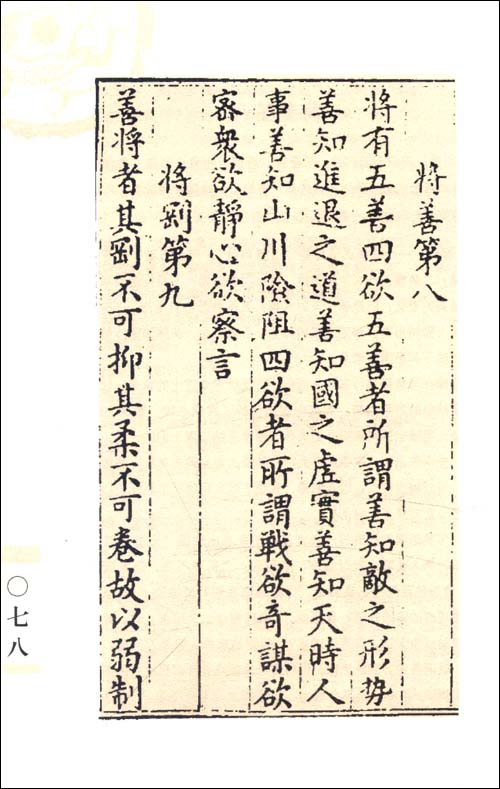 将善第八
将有五善四欲五善者所謂善知敵之形势
善知進退之道善知國之虚實善知天時人
事善知山川險阻四欲者所謂戰欲奇謀欲
宻衆欲靜心欲察言
将剛第九
善将者其剛不可抑其柔不可卷故以弱制
〇七八